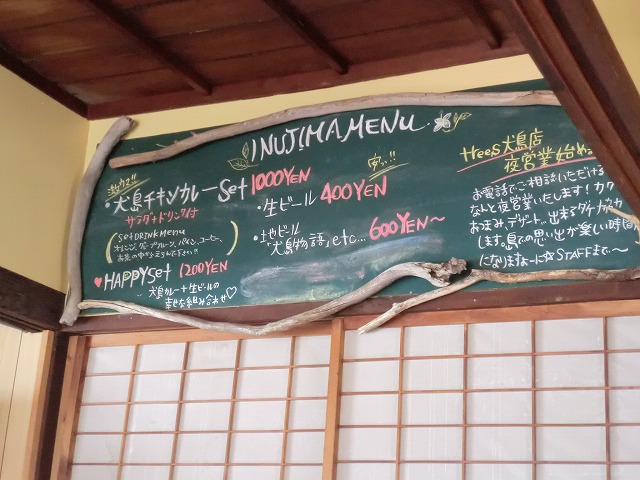 INUJIMA MENU
激ウマ!!
・犬島チキンカレーSet 1000YEN
サラダ+ドリンク付
Set DRINK Menu
オレンジ、グレープフルーツ、パイン、コーヒー、
お茶の中からえらんで下さい!!
♥HAPPY Set 1200YEN
犬島カレー+生ビールの
幸せな組み合わせ♡
安っ!!
・生ビール 400YEN
・地ビール
「犬島物語」etc... 600YEN〜
trees犬島店
夜営業始め
お電話でご相談いただける
なんと夜営業いたします!カク
おつまみ、デザート...出来るダケ
します。島での思い出が楽しい時間
になりますよーに☆STAFFまで〜